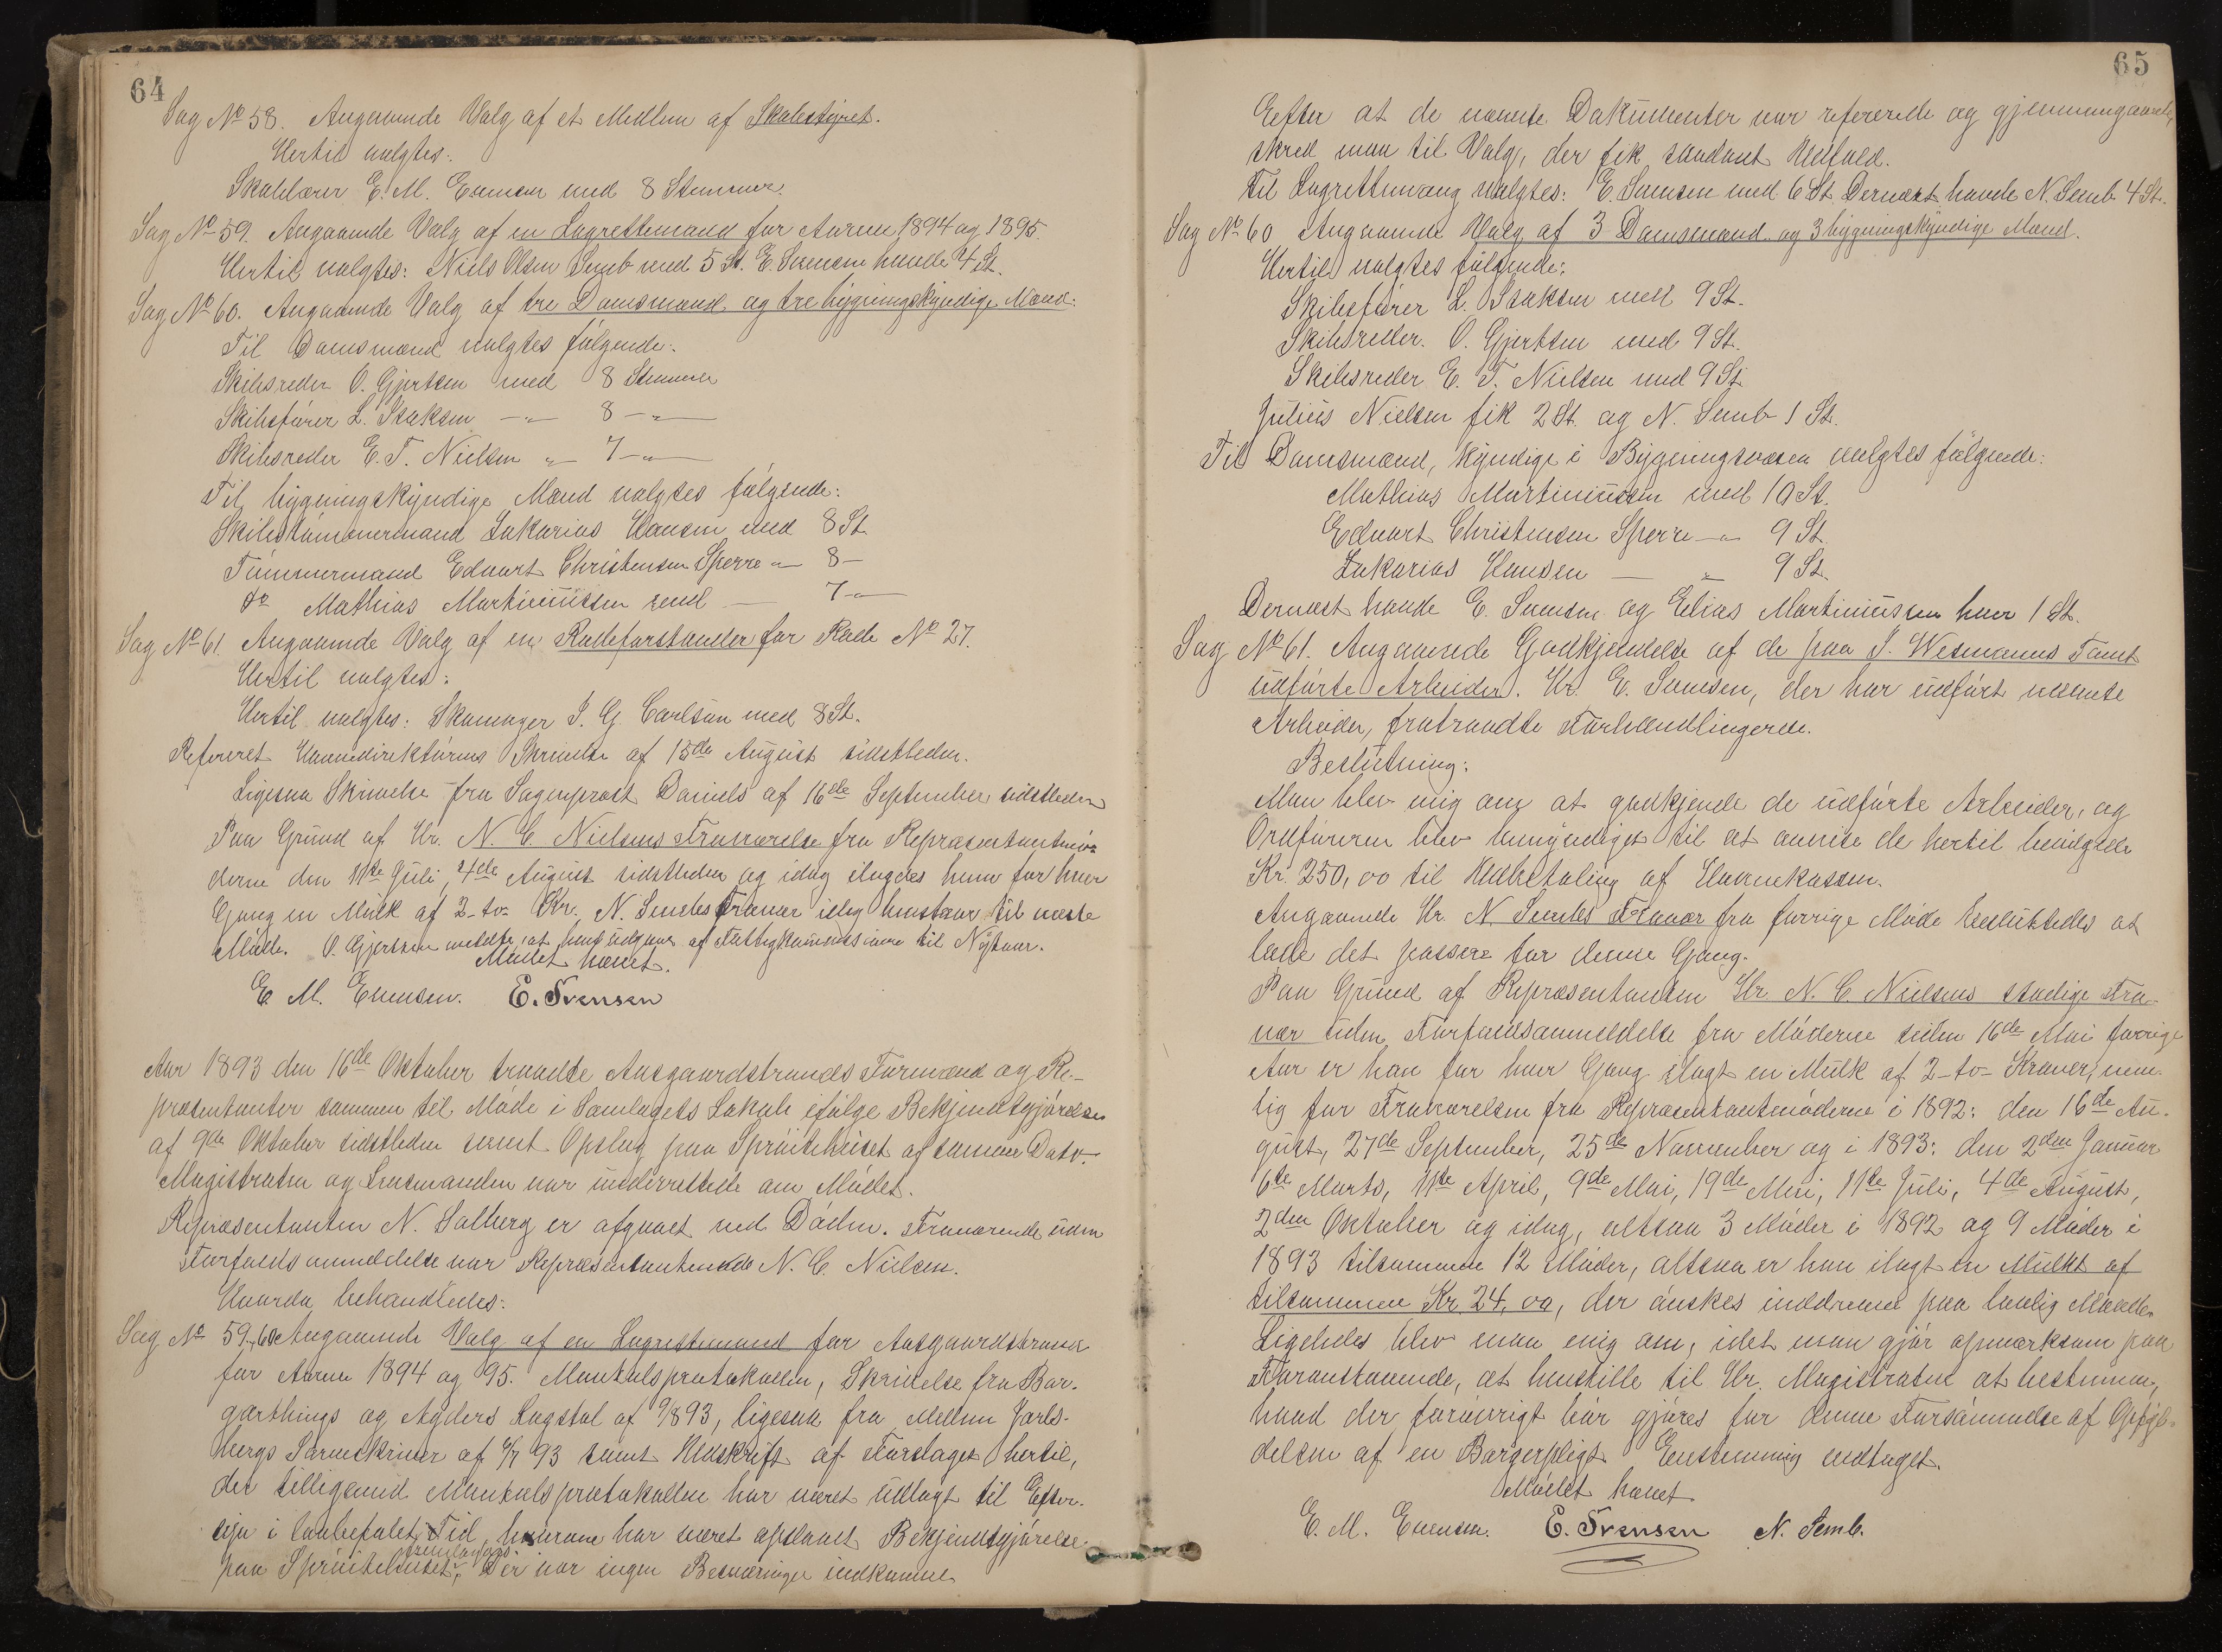 64
Sag No 58. Angaaende Valg af et Medlem af Skolestyret.
Hertil valgtes:
Skolelærer E. M. Evensen med 8 Stemmer.
Sag No 59. Angaaende Valg af en Lagrettemand for Aarene 1894 og 1895.
Hertil valgtes: Niels Olsen Semb med 5 St. E. Svensen havde 4 St.
Sag No 60. Angaaende Valg af tre Domsmænd og tre bygningskyndige Mænd:
Til Domsmænd valgtes følgende:
Skibsreder O. Gjertsen med 8 Stemmer
Skibsfører L. Isaksen —"— 8 —"—
Skibsreder E. T. Nielsen "— 7 —"—
Til bygningskyndige Mænd valgtes følgende:
Skibstømmermand Zakarias Hansen med 8 St.
Tømmermand Edvart Christensen Sperre "— 8 —
do Mathias Martiniussen med — 7 "—
Sag No 61. Angaaende Valg af en Rodeforstander for Rode No 27.
Hertil valgtes:
Hertil valgtes: Skomager J. G. Carlson med 8 St.
Refereret Havnedirektørens Skrivelse af 15de August sidstleden.
Ligesaa Skrivelse fra Sogneprost Daniels af 16de September sidstleden
Paa Grund af Hr. N. C. Nielsens Fraværelse fra Repræsentantmø-
derne den 11te Juli, 4de August sidstleden og idag ilagdes ham for hver
Gang en Mulk af 2 -to- Kr. N. Sembs Fravær idag henstaar til næste
Møde. O. Gjertsen meldte, at han udgaar af Fattigkommissionen til Nytaar.
Mødet hævet.
E. M. Evensen. E. Svensen
Aar 1893 den 16de Oktober traadte Aasgaardstrands Formænd og Re-
præsentanter sammen til Møde i Samlagets Lokale ifølge Bekjendtgjørelse
af 9de Oktober sidstleden samt Opslag paa Sprøitehuset af samme Dato.
Magistraten og Lensmanden var underrettede om Mødet.
Repræsentanten N. Solberg er afgaaet ved Døden. Fraværende uden
Forfaldsanmeldelse var Repræsentanten N. C. Nielsen.
Hvorda behandledes:
Sag No 59, 60 Angaaende Valg af en Lagrettemand for Aasgaardstrand
for Aarene 1894 og 95. Mantalsprotokollen, Skrivelse fra Bor-
garthings og Agders Lagstol af 9/893, ligesaa fra Mellem Jarls-
bergs Sorenskriver af 6/9 93 samt Udskrift af Forslaget hertil,
der tilligemed Mantalsprotokollen har været udlagt til Efter-
syn i lovbefalet Tid, hvorom har været opslaaet Bekjendtgjørelse
paa Sprøitehuset, Der var ingen Besværinger indkomne
65
Efter at de nævnte Dokumenter var refererede og gjennemgaaede,
skred man til Valg, der fik saadant Udfald.
Til Lagrettemand valgtes: E. Svensen med 6 St. Dernæst havde N. Semb 4 St.
Sag No 60 Angaaende Valg af 3 Domsmænd og 3 bygningskyndige Mænd.
Hertil valgtes følgende:
Skibsfører L. Isaksen med 9 St.
Skibsreder O. Gjertsen med 9 St.
Skibsreder E. T. Nielsen med 9 St.
Julius Nielsen fik 2 St. og N. Semb 1 St.
Til Domsmænd, kyndige i Bygningsvæsen valgtes følgende:
Mathias Martiniussen med 10 St.
Edvart Christensen Sperre —"— 9 St.
Zakarias Hansen — " — 9 St.
Dernæst havde E. Svensen og Elias Martiniussen hver 1 St.
Sag No 61. Angaaende Godkjendelse af de paa J. Wesmanns Tomt
udførte Arbeider. Hr. E. Svensen, der har udført nævnte
Arbeider, fratraadte Forhandlingerne.
Beslutning:
Man blev enig om at godkjende de udførte Arbeider, og
Ordføreren blev bemyndiget til at anvise de hertil bevilgede
Kr. 250,00 til Udbetaling af Havnekassen.
Angaaende Hr. N. Sembs Fravær fra forrige Møde besluttedes at
lade det passere for denne Gang.
Paa Grund af Repræsentanten Hr. N. C. Nielsens stadige Fra-
vær uden Forfaldsanmeldelse fra Møderne siden 16de Mai forrige
Aar er han for hver Gang ilagt en Mulk af 2 -to- Kroner, nem-
lig for Fraværelsen fra Repræsentantmøderne i 1892: den 16de Au-
gust, 27de September, 25de November og i 1893: den 2den Januar
6te Marts, 11te April, 9de Mai, 19de Mai, 11te Juli, 4de August,
2den Oktober og idag, altsaa 3 Møder i 1892 og 9 Møder i
1893 tilsammen 12 Møder, altsaa er han ilagt en Mulkt af
tilsammen Kr. 24,00, der ønskes inddreven paa lovlig Maade.
Ligeledes blev man enig om, idet man gjør opmærksom paa
Foranstaaende, at henstille til Hr. Magistraten at bestemme,
hvad der forøvrigt bør gjøres for denne Forsømmelse af Opfyl-
delsen af en Borgerpligt. Enstemmig vedtaget.
Mødet hævet
E. M. Evensen. E. Svensen N. Semb.